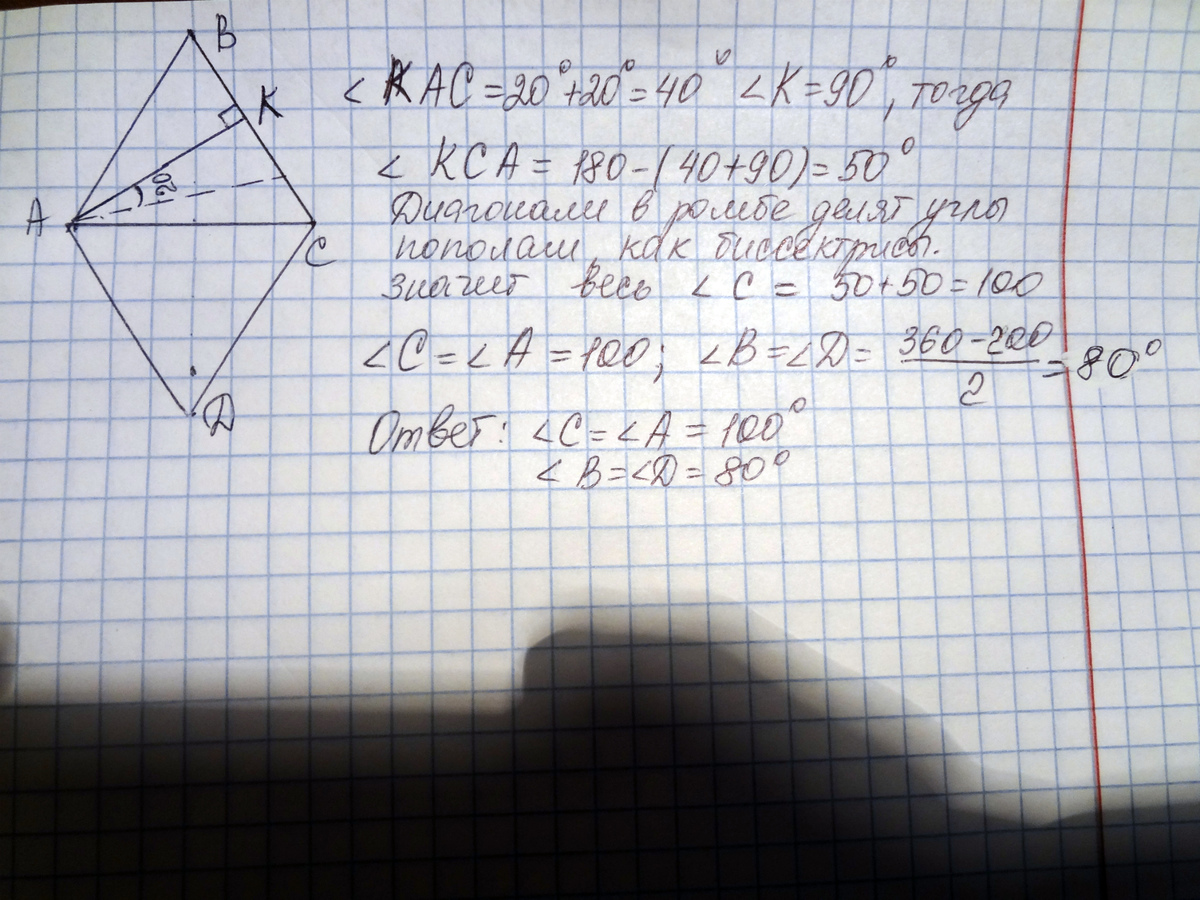 B
K
20
A
C
D
∠ KAC = 20° + 20° = 40° ∠K = 90°, тогда
∠ KCA = 180 - (40 + 90) = 50°
Диагонали в ромбе делят углы
пополам, как биссектрисы.
значит весь ∠ C = 50 + 50 = 100
∠C = ∠A = 100; ∠B = ∠D = (360 - 200)/2 = 80°
Ответ: ∠C = ∠A = 100°
∠ B = ∠D = 80°